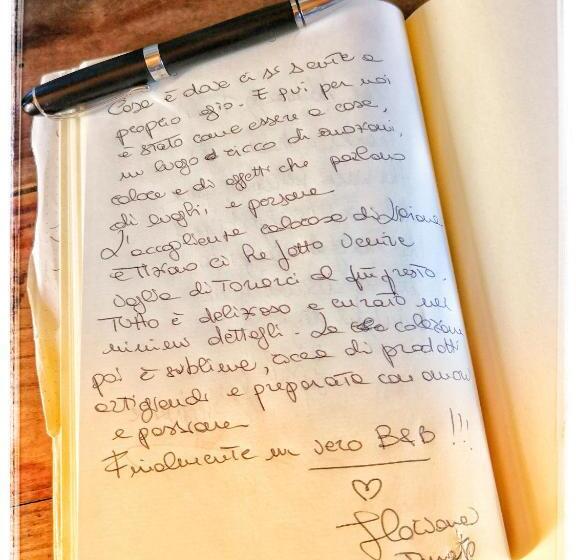 Casa è dove ci si sente a
proprio agio. E qui per noi
è stato come essere a casa,
un luogo ricco di emozioni,
calore e di oggetti che parlano
di luoghi, e persone
L'accogliente calorosa di Viviana
e Tiziano ci ha fatto venire
voglia di tornarci al più presto.
Tutto è delizioso e curato nei
minimi dettagli. La colazione
poi è sublime, ricca di prodotti
artigianali e preparata con amore
e passione
Finalmente un vero B&B !!!